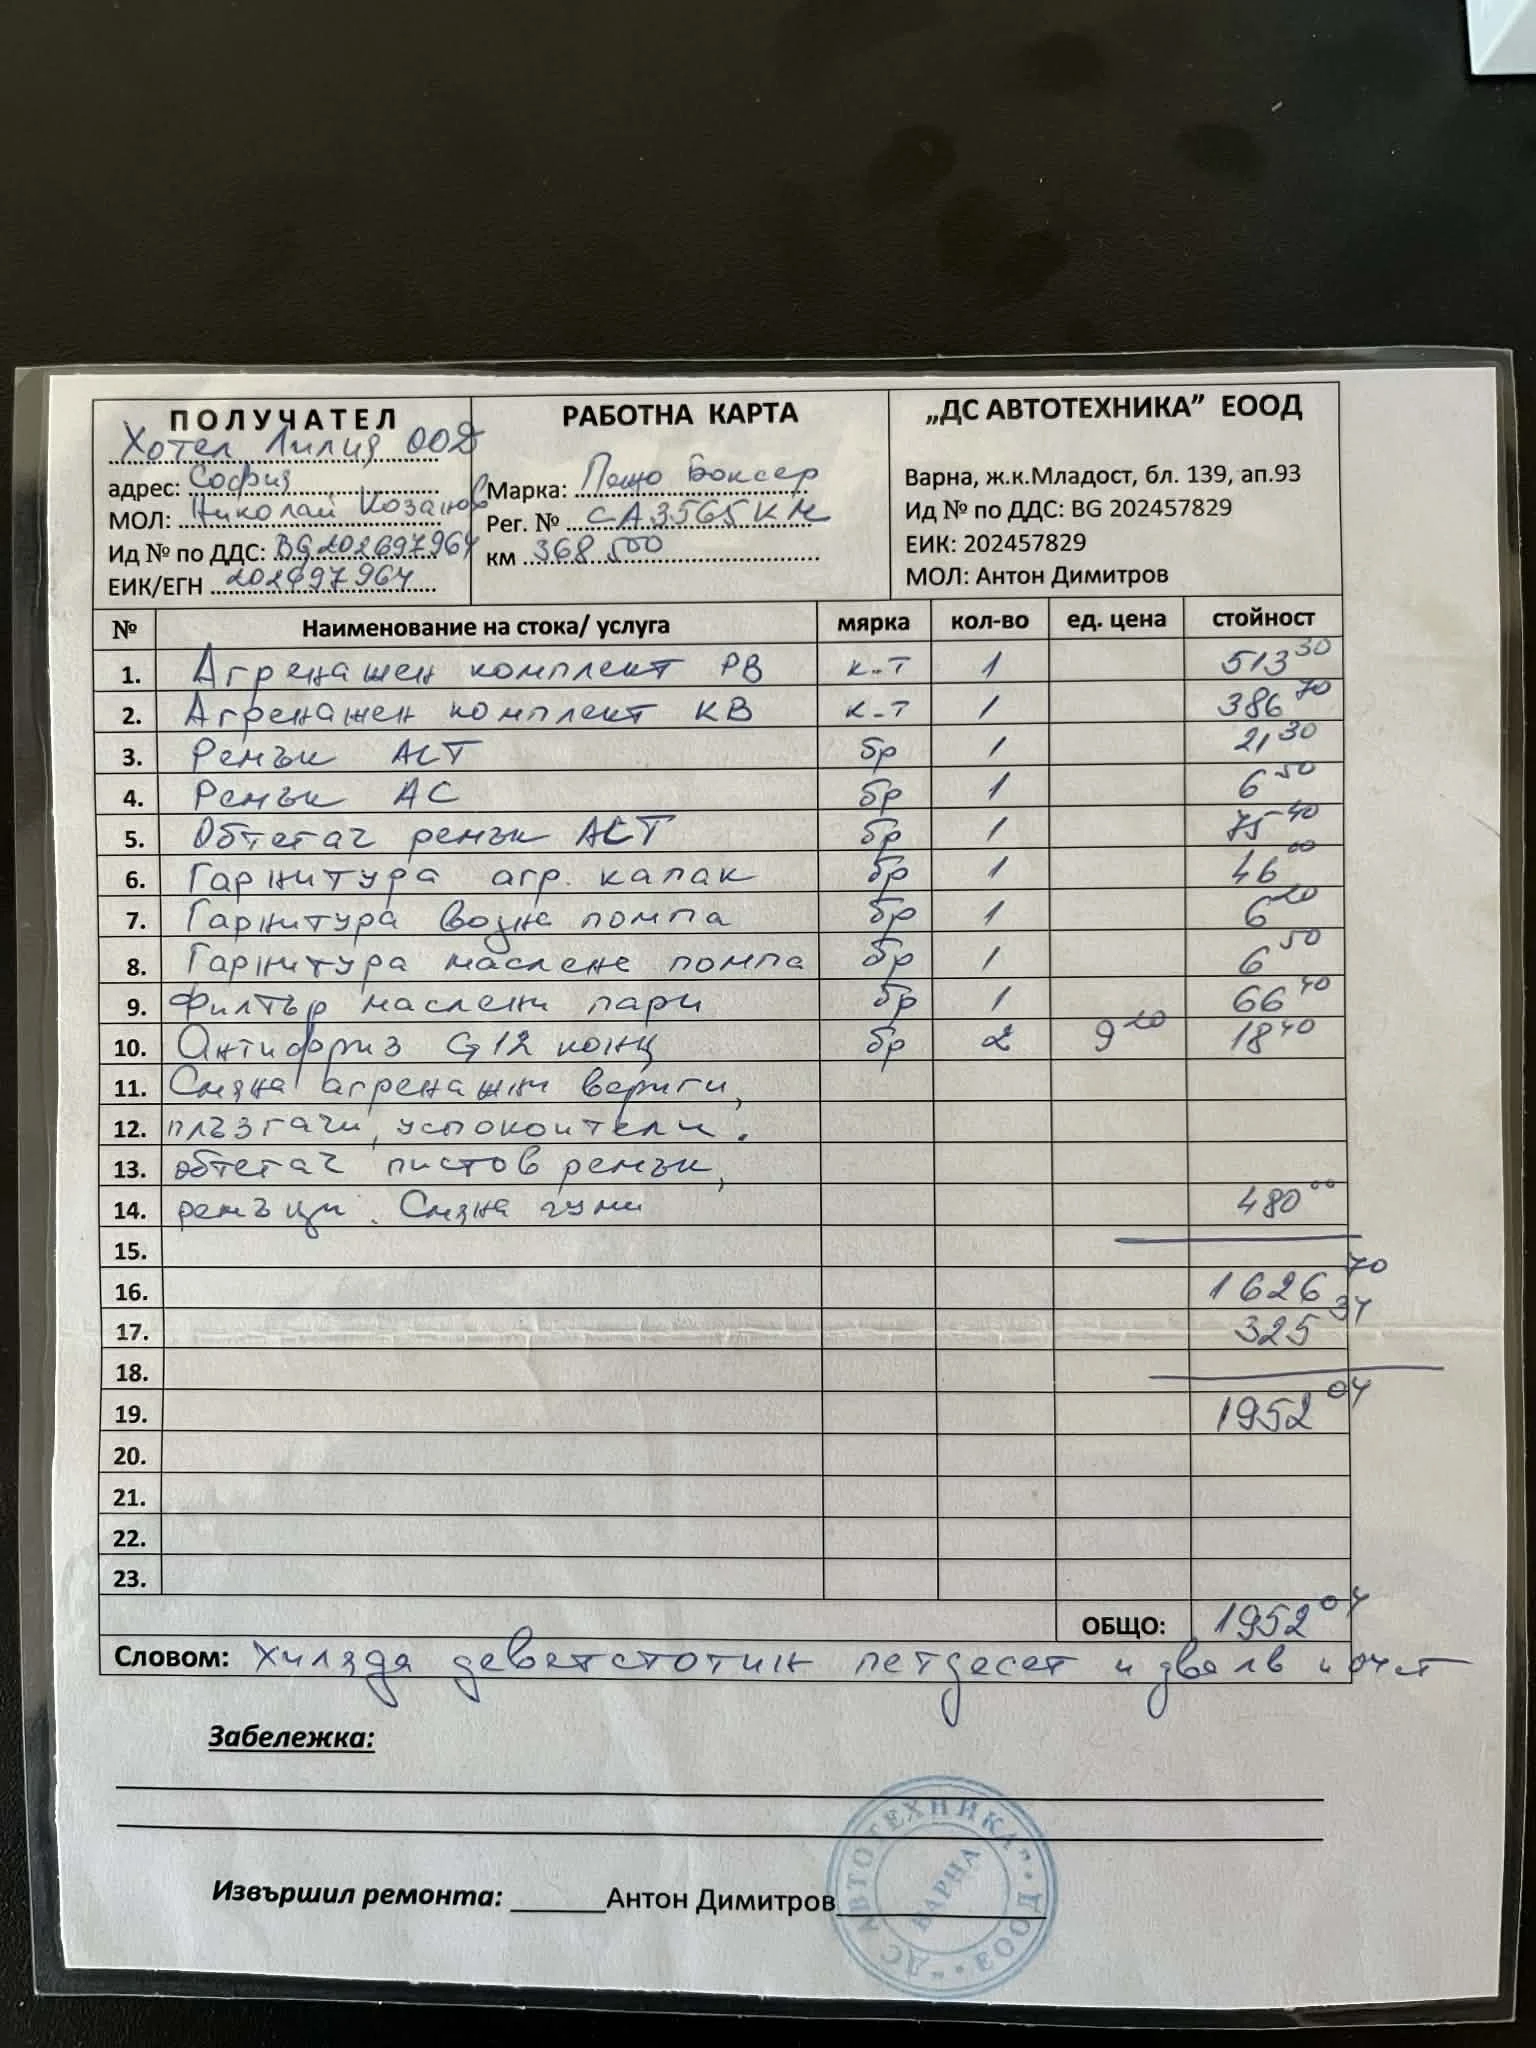 ПОЛУЧАТЕЛ
Хотел Лилия ООД
адрес: София
МОЛ: Николай Козанов
Ид № по ДДС: BG202697964
ЕИК/ЕГН 202697964
РАБОТНА КАРТА
Марка: Пежо Боксер
Рег. № СА3565КМ
км 368 500
„ДС АВТОТЕХНИКА” ЕООД
Варна, ж.к.Младост, бл. 139, ап.93
Ид № по ДДС: BG 202457829
ЕИК: 202457829
МОЛ: Антон Димитров
№ Наименование на стока/ услуга мярка кол-во ед. цена стойност
1. Агренажен комплект РВ к-т 1 513 30
2. Агренажен комплект КВ к-т 1 386 70
3. Ремък ALT бр 1 21 30
4. Ремък AC бр 1 6 50
5. Обтегач ремък ALT бр 1 75 40
6. Гарнитура агр. капак бр 1 46 00
7. Гарнитура водна помпа бр 1 6 20
8. Гарнитура маслена помпа бр 1 6 50
9. Филтър маслени пари бр 1 66 40
10. Антифриз G12 конц бр 2 9 20 18 40
11. Смяна агренажни вериги,
12. плъзгачи, успокоители.
13. обтегач пистов ремък,
14. ремъци. Смяна гуми 480 00
15.
16. 1626 70
17. 325 34
18.
19. 1952 04
20.
21.
22.
23.
ОБЩО: 1952 04
Словом: Хиляда деветстотин петдесет и два лв и 04 ст
Забележка:
Извършил ремонта: ______Антон Димитров
„ДС АВТОТЕХНИКА” ЕООД
ВАРНА